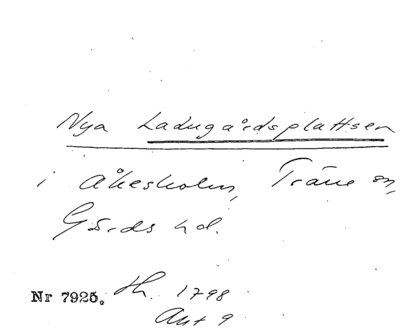 Nya Ladugårdsplattsen
i Åkesholm, Träne sn,
Gärds hd.
Nr 7925. Th. 1798
Akt 9